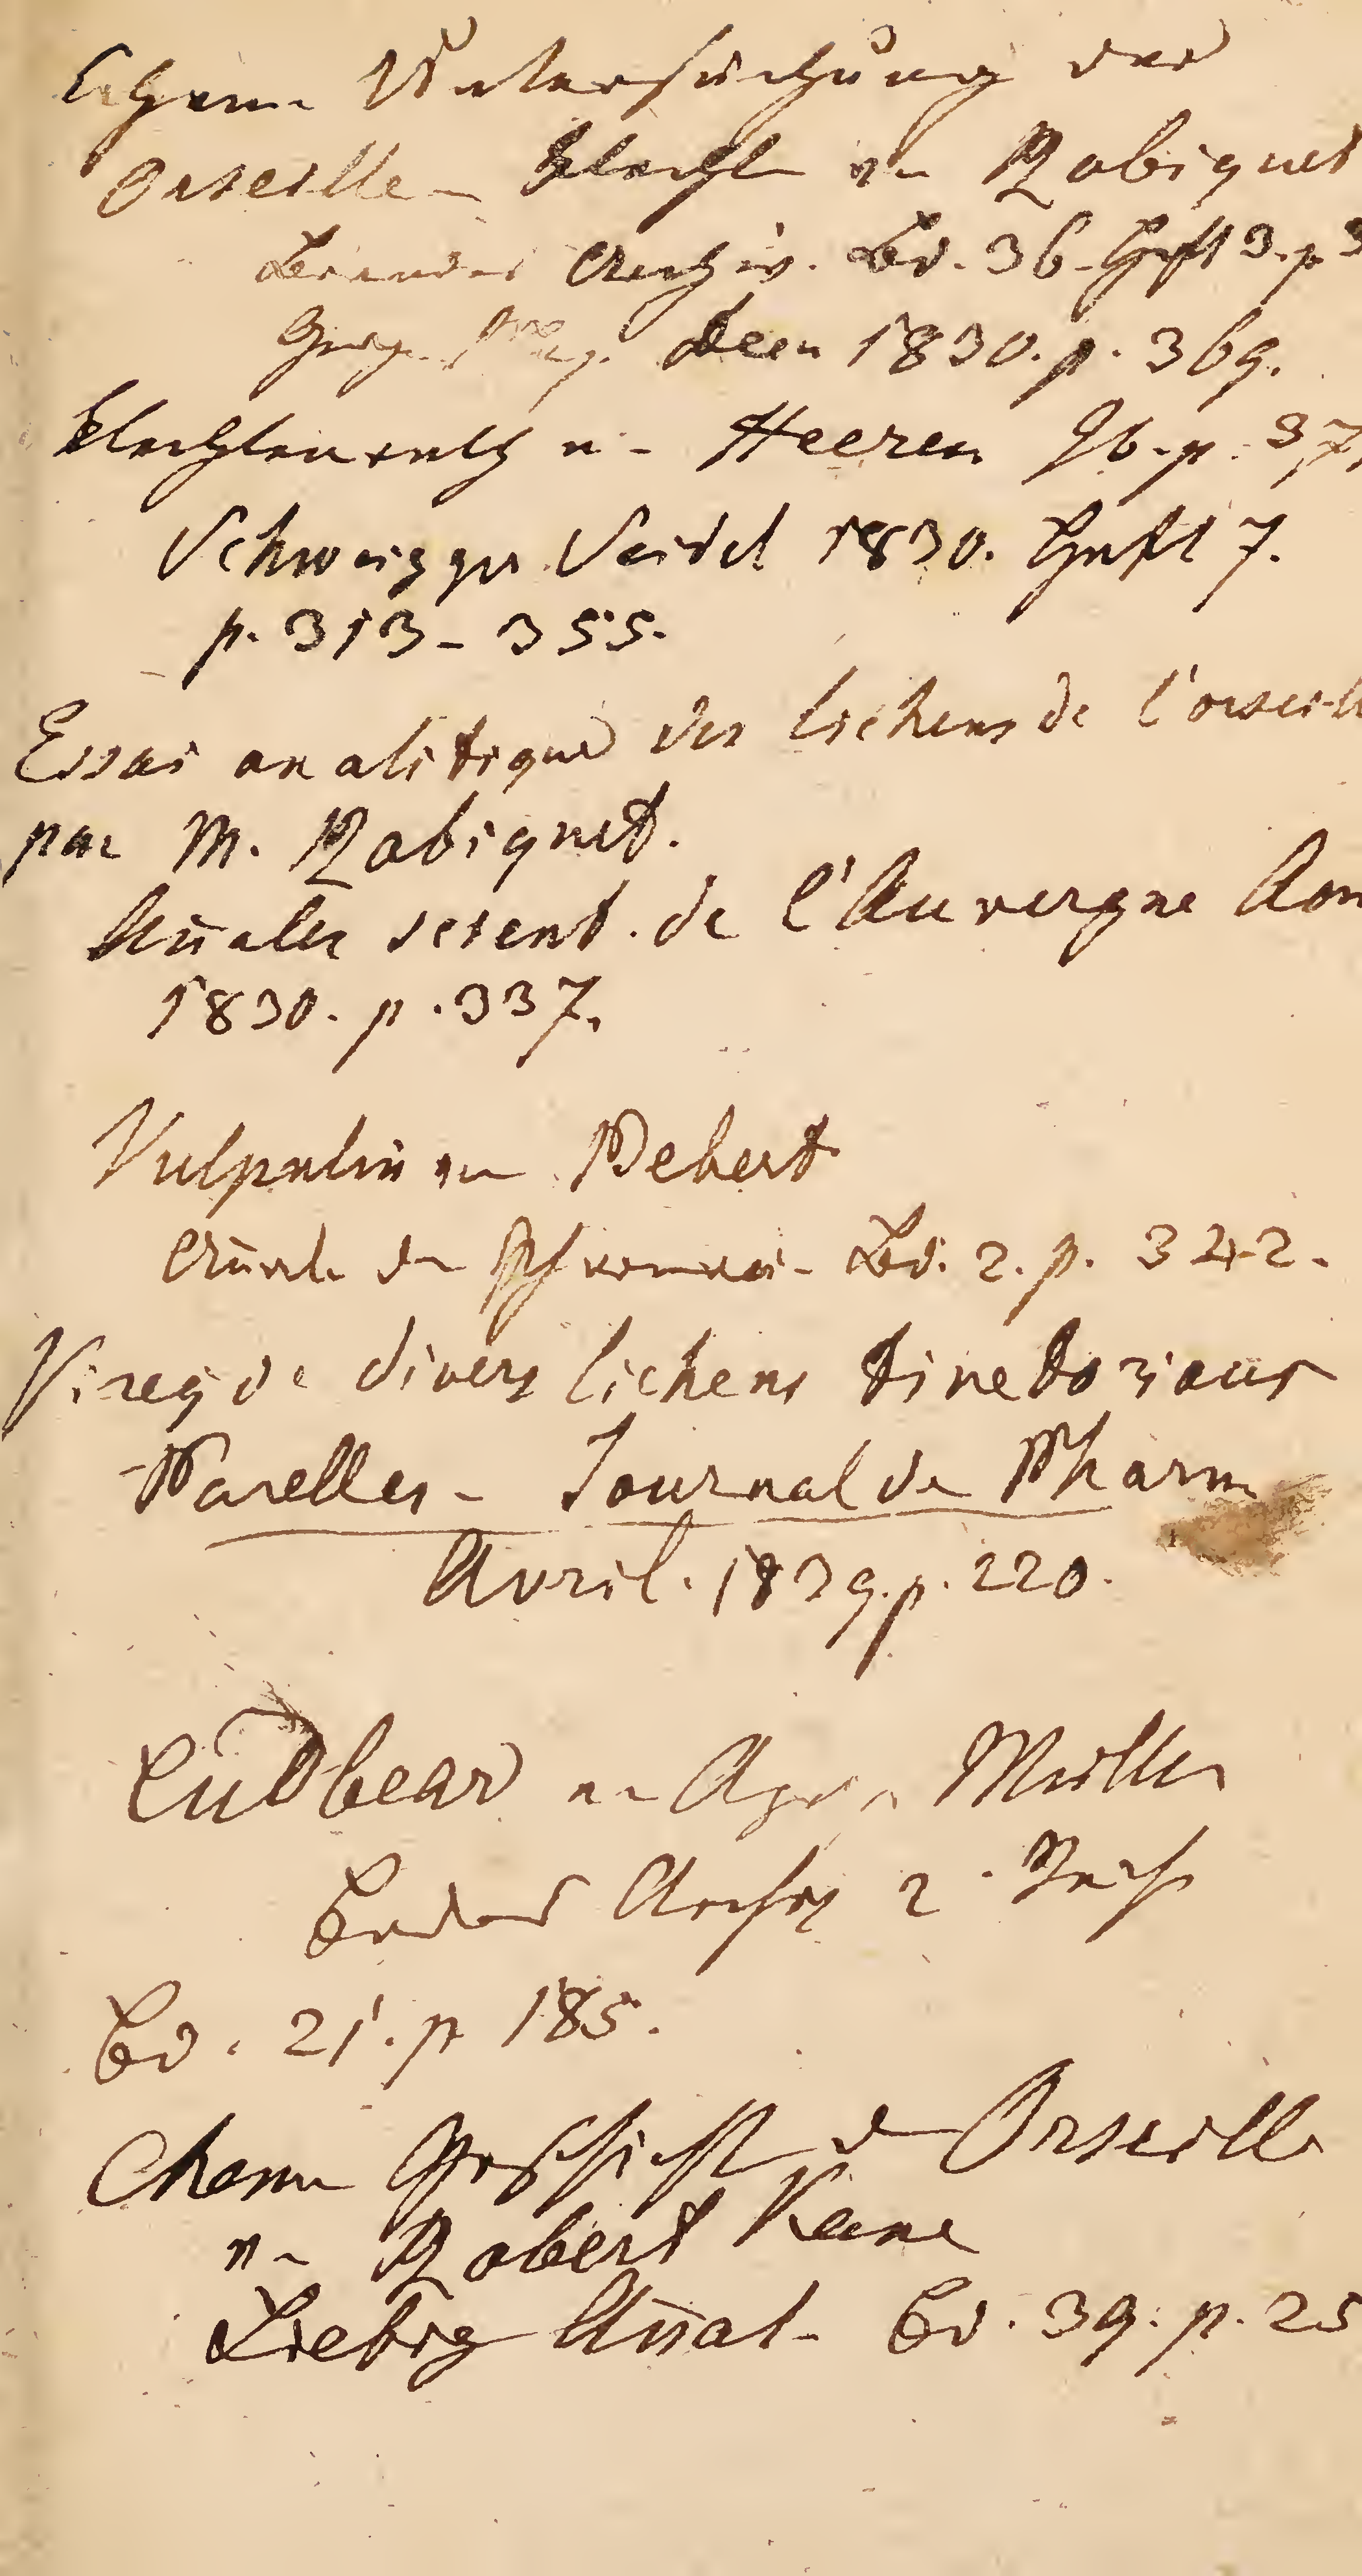 Chem. Untersuchung der
Orseille-Flechte von Robiquet
Brandes Archiv. Bd. 36. Heft 3. p. 3
Geiger Mag. Decem 1830. p. 369.
Flechten v. Heeren Ib. p. 37
Schweigger Seidel 1830. Heft 7.
p. 313-355.
Essai analitique des lichens de l'orseill
par M. Robiquet.
Añales scient. de l'Auvergne
1830. p. 337.
Vulpulin von Bebert
Añal. der Pharmacie Bd. 2. p. 342.
Virey de divers lichens tinctoriaux
Parelles - Journal de Pharm
Avril. 1839. p. 220.
Cudbear v. Müller
Brandes Archiv 2. Reihe
Bd. 21. p 185.
Chem. Geschichte der Orseille
von Robert Kane
Liebig Añal. Bd. 39. p. 25